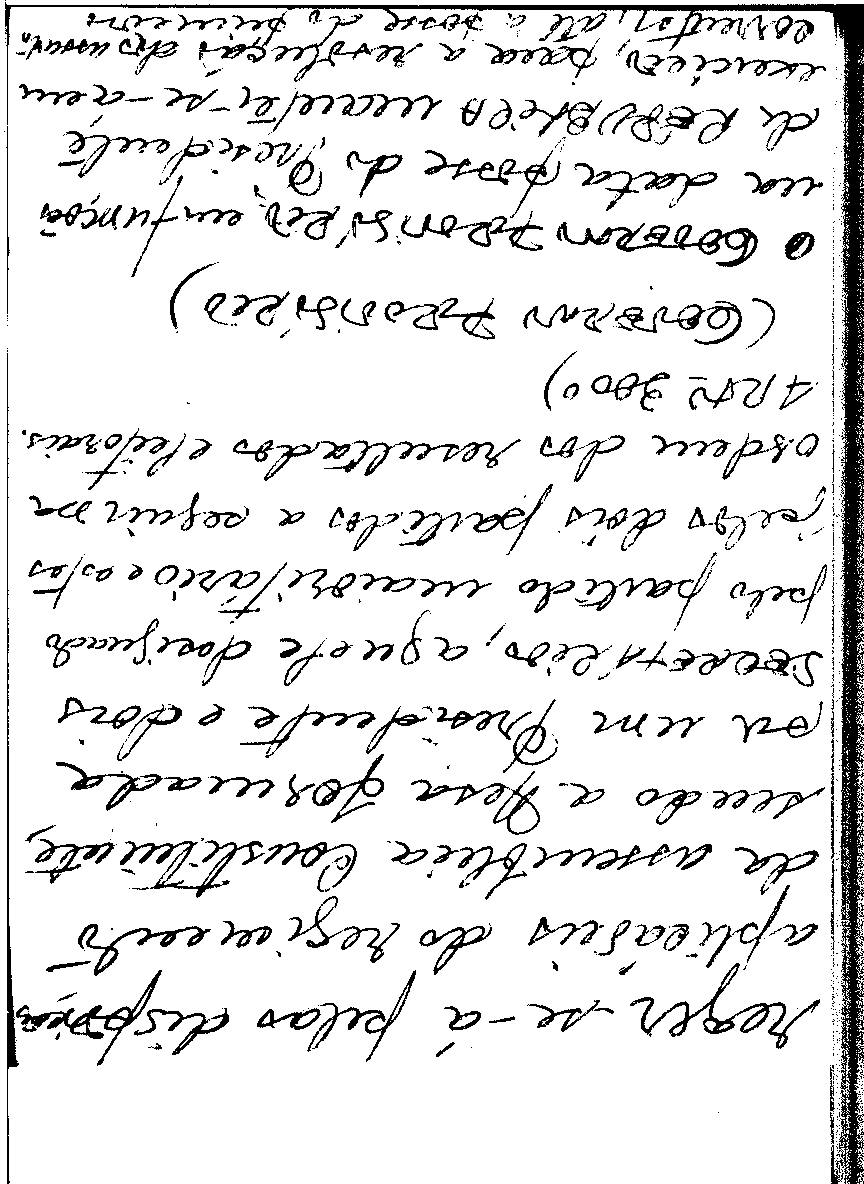 reger-se-á pelas disposições
aplicáveis do regimento
da assembleia Constituinte,
sendo a Mesa formada
por um Presidente e dois
SECRETÁRIOS, aquele designado
pelo partido maioritário e estes
pelos dois partidos a seguir na
ordem dos resultados eleitorais.
(GOVERNO PROVISÓRIO)
O GOVERNO PROVISÓRIO, em funções
na data posse do Presidente
da REPÚBLICA manter-se-á em
exercício, para a resolução dos assuntos
correntes, até à posse do primeiro